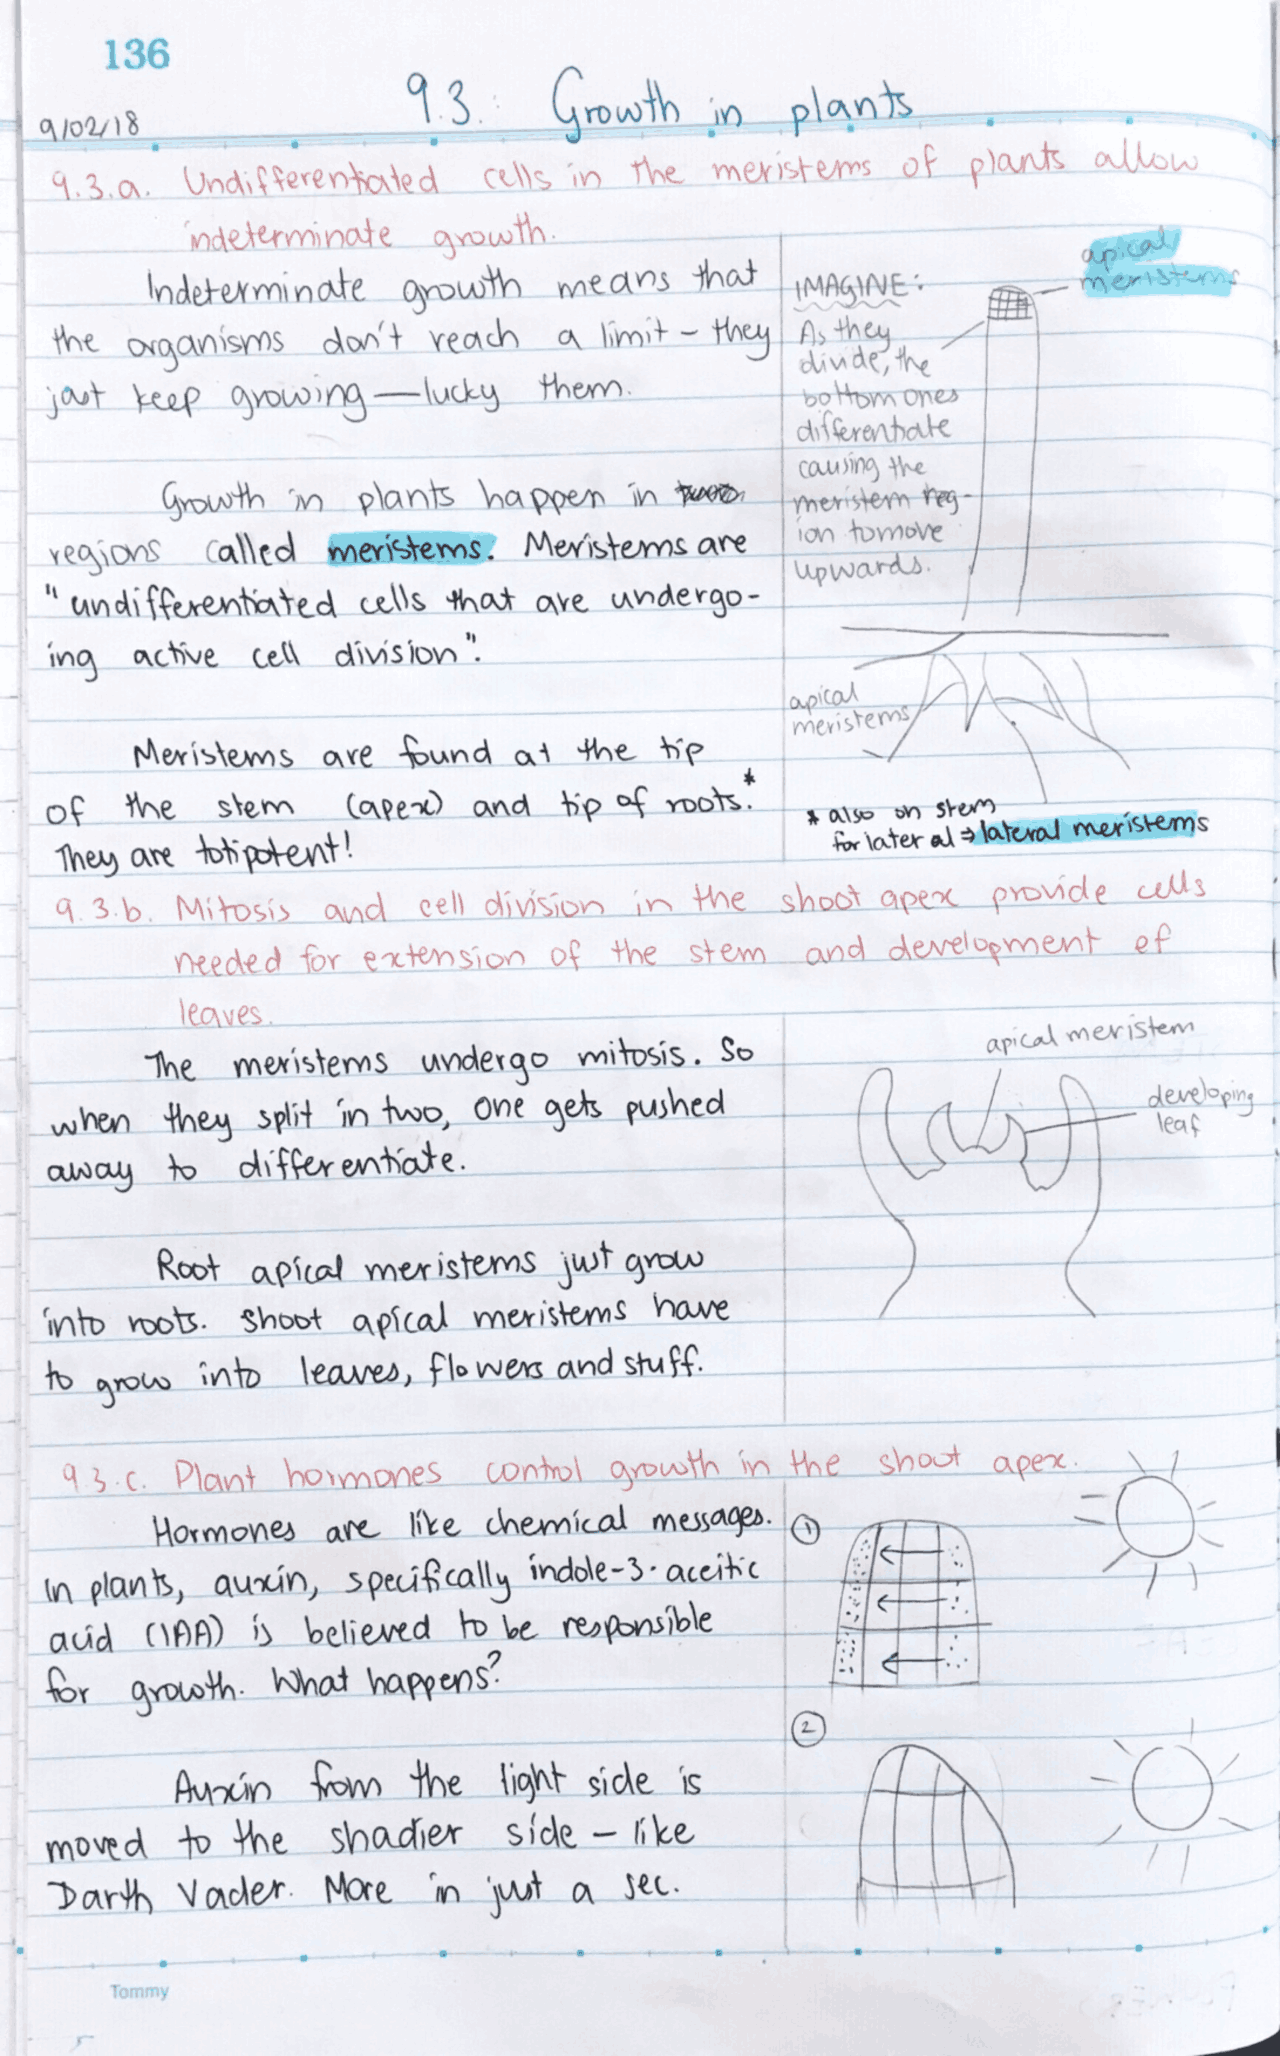 136
9.3. Growth in plants
9/02/18
9.3.a. Undifferentiated cells in the meristems of plants allow
indeterminate growth.
Indeterminate growth means that
the organisms don't reach a limit – they
just keep growing — lucky them.
Growth in plants happen in
regions called meristems. Meristems are
"undifferentiated cells that are undergo-
ing active cell division".
Meristems are found at the tip
of the stem (apex) and tip of roots.*
They are totipotent!
apical
meristems
IMAGINE:
As they
divide, the
bottom ones
differentiate
causing the
meristem reg-
ion to move
upwards.
apical
meristems
* also on stem
for later al ⇒ lateral meristems
9.3.b. Mitosis and cell division in the shoot apex provide cells
needed for extension of the stem and development of
leaves.
The meristems undergo mitosis. So
when they split in two, one gets pushed
away to differentiate.
Root apical meristems just grow
into roots. Shoot apical meristems have
to grow into leaves, flowers and stuff.
apical meristem
developing
leaf
9.3.c. Plant hormones control growth in the shoot apex.
Hormones are like chemical messages.
In plants, auxin, specifically indole-3-aceitic
acid (IAA) is believed to be responsible
for growth. What happens?
Auxin from the light side is
moved to the shadier side – like
Darth Vader. More in just a sec.
1
2
Tommy